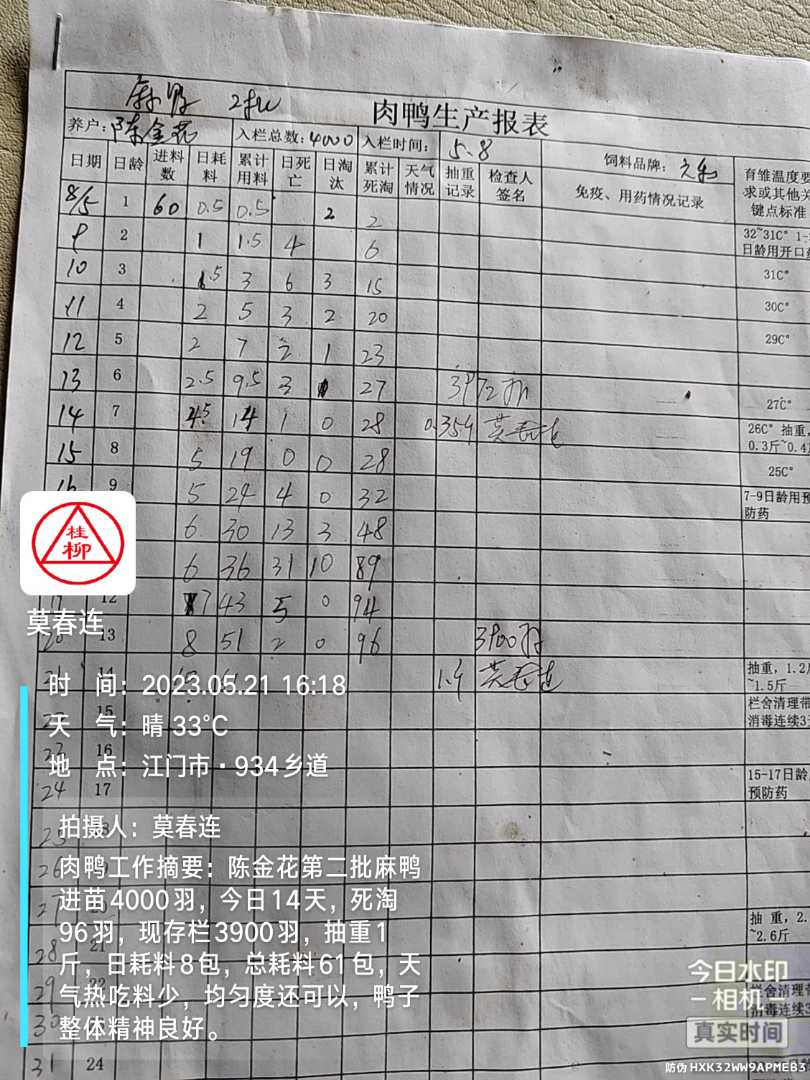 麻鸭 2批
肉鸭生产报表
养户:陈金花 入栏总数:4000 入栏时间: 5.8 饲料品牌:
日期 日龄 进料数 日耗料 累计用料 日死亡 日淘汰 累计死淘 天气情况 抽重记录 检查人签名 免疫、用药情况记录 育雏温度要求或其他关键点标准
8/5 1 60 0.5 0.5 2 2 32~31C° 1-
9 2 1 1.5 4 6 日龄用开口
10 3 1.5 3 6 3 15 31C°
11 4 2 5 3 2 20 30C°
12 5 2 7 2 1 23 29C°
13 6 2.5 9.5 3 27 3972 27C°
14 7 4.5 14 1 0 28 0.354 莫春连 26C° 抽重,
0.3斤~0.4
15 8 5 19 0 0 28 25C°
16 9 5 24 4 0 32 7-9日龄用预防药
6 30 13 3 48
6 36 31 10 89
12 7 43 5 0 94
20 13 8 51 2 0 96 3900羽
21 14 莫春连 抽重, 1.2
~1.5斤
15 栏舍清理带
消毒连续3
23 16
24 17 15-17日龄
预防药
25
26
27
抽 重, 2.
~2.6斤
28 21
29 22 栏舍清理带
消毒连续3
30
31 24
桂柳
莫春连
时 间:2023.05.21 16:18
天 气:晴 33℃
地 点:江门市·934乡道
拍摄人:莫春连
肉鸭工作摘要:陈金花第二批麻鸭
进苗4000羽,今日14天,死淘
96羽,现存栏3900羽,抽重1
斤,日耗料8包,总耗料61包,天
气热吃料少,均匀度还可以,鸭子
整体精神良好。
今日水印
-相机-
真实时间
防伪 HXK32WW9APMEB3